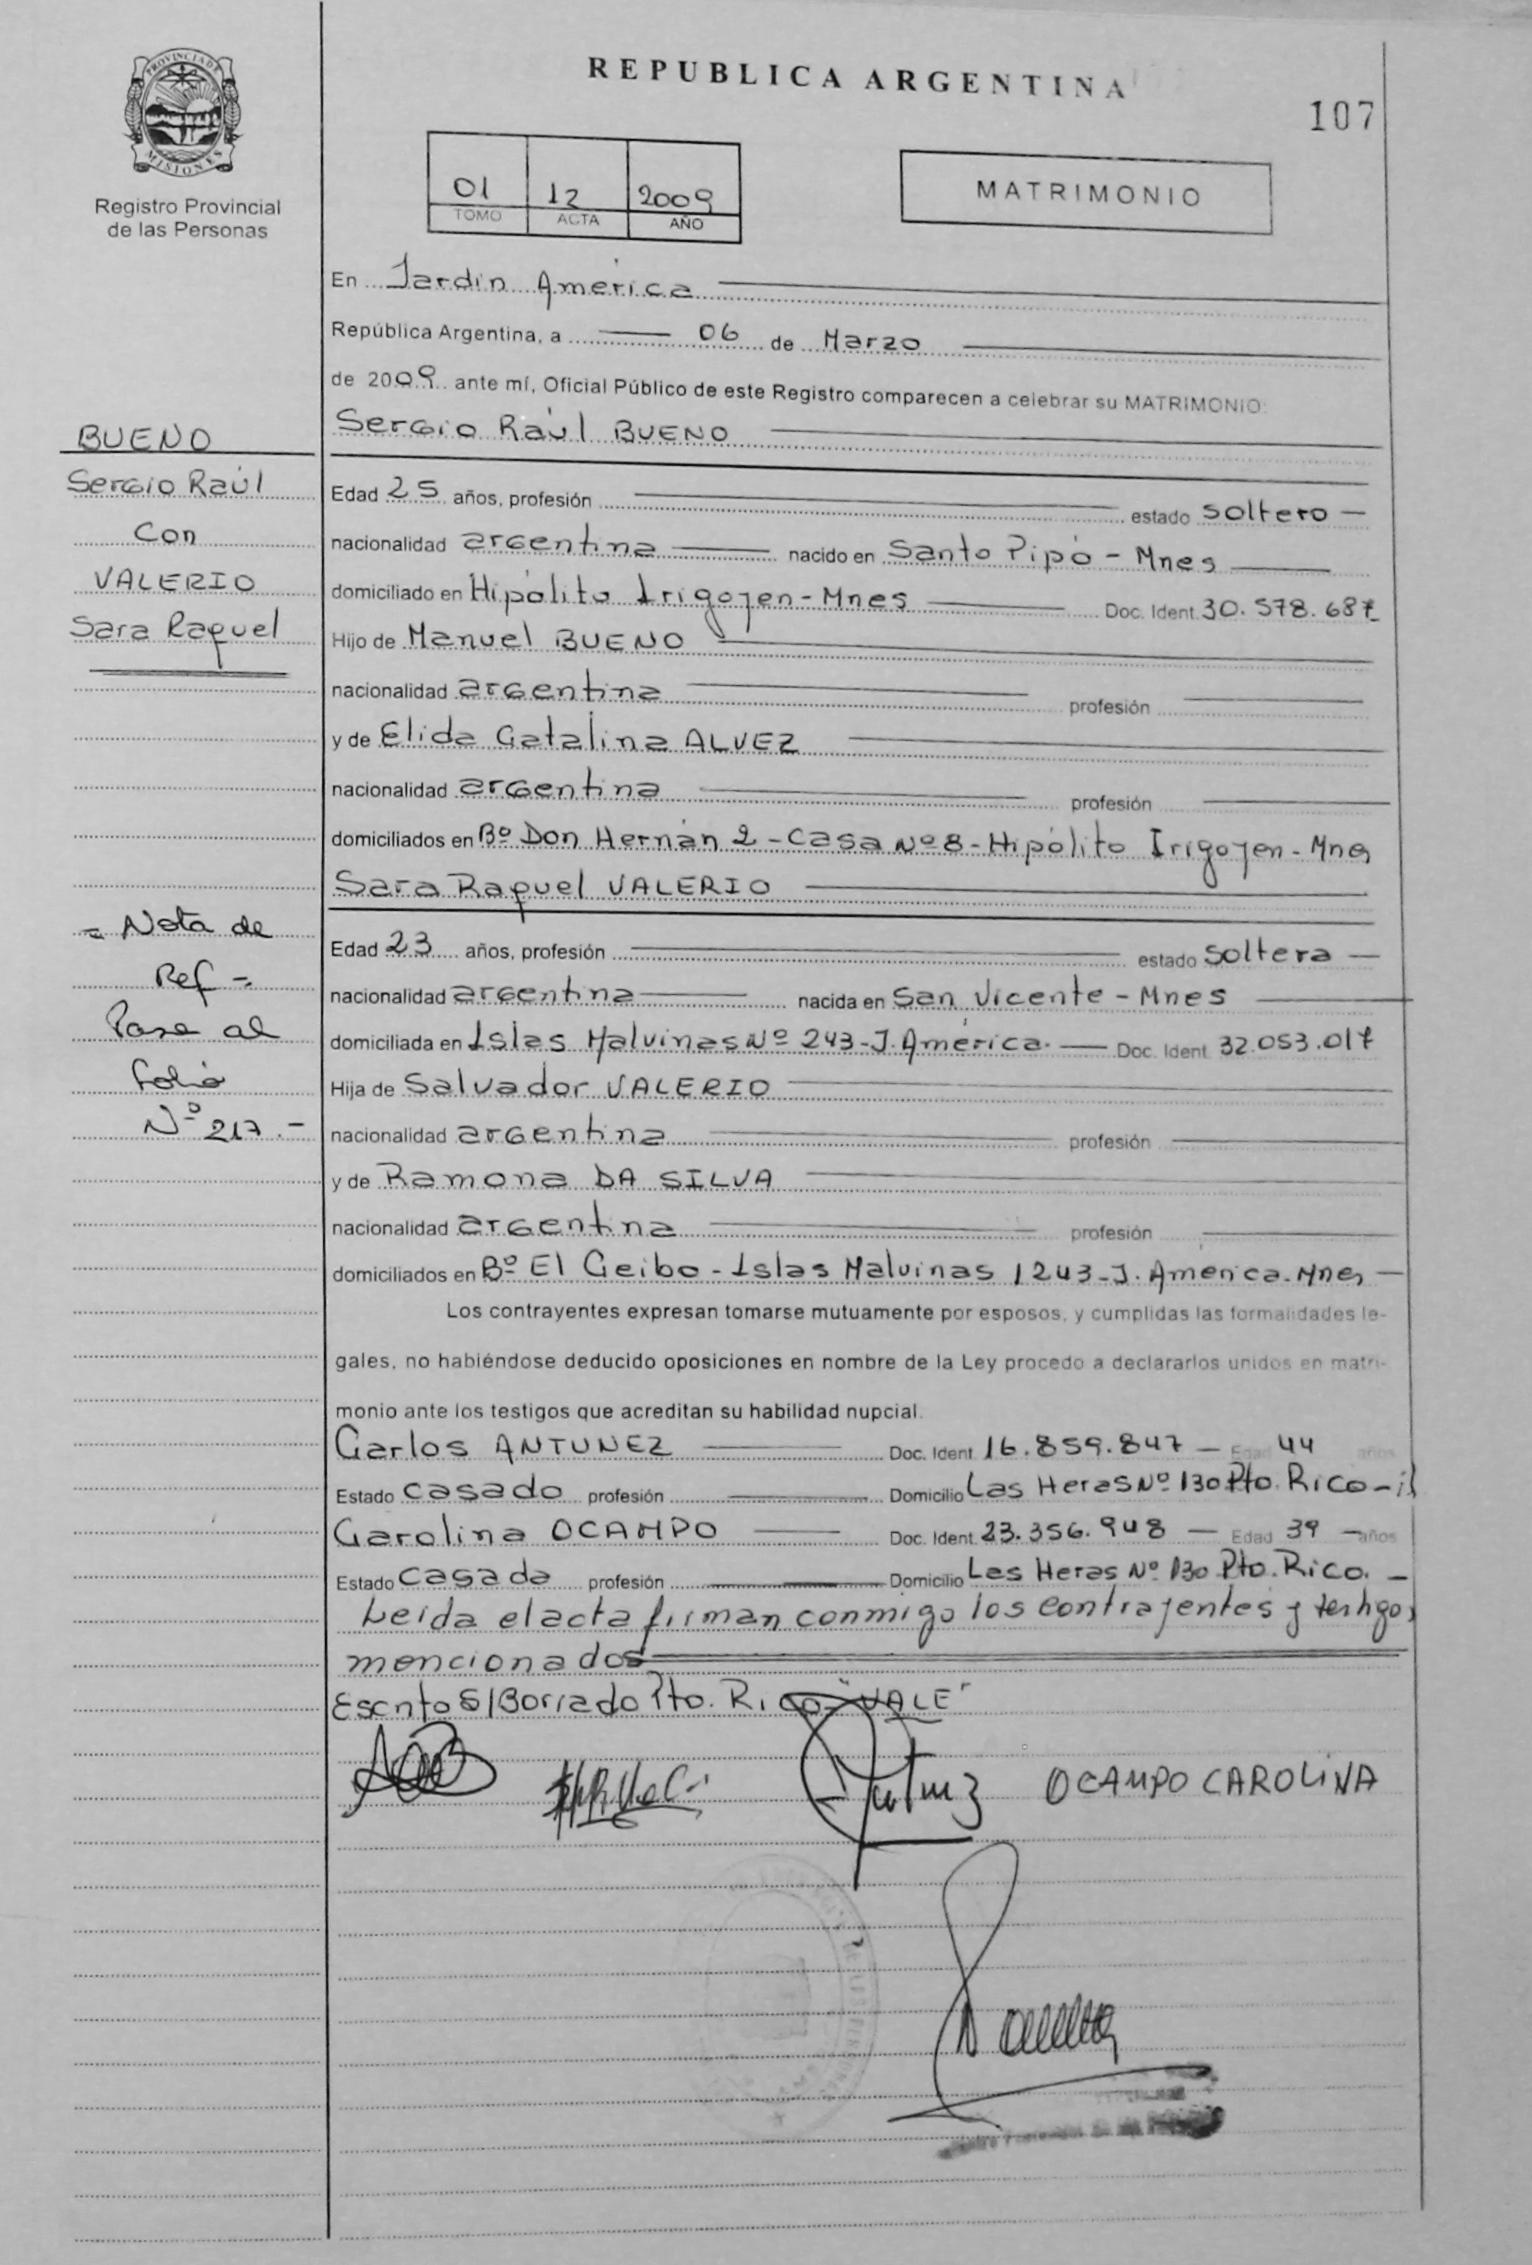 REPUBLICA ARGENTINA
107
PROVINCIA DE
MISIONES
Registro Provincial
de las Personas
01 12 2009
TOMO ACTA AÑO
MATRIMONIO
En Jardín América
República Argentina, a 06 de Marzo
de 2009 ante mí, Oficial Público de este Registro comparecen a celebrar su MATRIMONIO:
Sergio Raúl BUENO
Edad 25 años, profesión estado soltero
nacionalidad argentina nacido en Santo Pipó - Mnes
domiciliado en Hipólito Irigoyen - Mnes Doc. Ident. 30.578.687
Hijo de Manuel BUENO
nacionalidad argentina profesión
y de Elida Catalina ALVEZ
nacionalidad argentina profesión
domiciliados en Bº Don Hernán 2 - Casa Nº 8 - Hipólito Irigoyen - Mnes
Sara Raquel VALERIO
Edad 23 años, profesión estado soltera
nacionalidad argentina nacida en San Vicente - Mnes
domiciliada en Islas Malvinas Nº 243 - J. América. Doc. Ident. 32.053.017
Hija de Salvador VALERIO
nacionalidad argentina profesión
y de Ramona DA SILVA
nacionalidad argentina profesión
domiciliados en Bº El Ceibo - Islas Malvinas 1243 - J. América - Mnes
Los contrayentes expresan tomarse mutuamente por esposos, y cumplidas las formalidades le-
gales, no habiéndose deducido oposiciones en nombre de la Ley procedo a declararlos unidos en matri-
monio ante los testigos que acreditan su habilidad nupcial.
Carlos ANTUNEZ Doc. Ident. 16.859.847 Edad 44 años
Estado casado profesión Domicilio Las Heras Nº 130 Pto. Rico
Carolina OCAMPO Doc. Ident. 23.356.948 Edad 39 años
Estado casada profesión Domicilio Las Heras Nº 130 Pto. Rico.
Leída el acta firman conmigo los contrayentes y testigos
mencionados
Escrito S/Borrado Pto. Rico "VALE"
OCAMPO CAROLINA
BUENO
Sergio Raúl
Con
VALERIO
Sara Raquel
= Nota de
Ref =
Pase al
folio
Nº 217.-